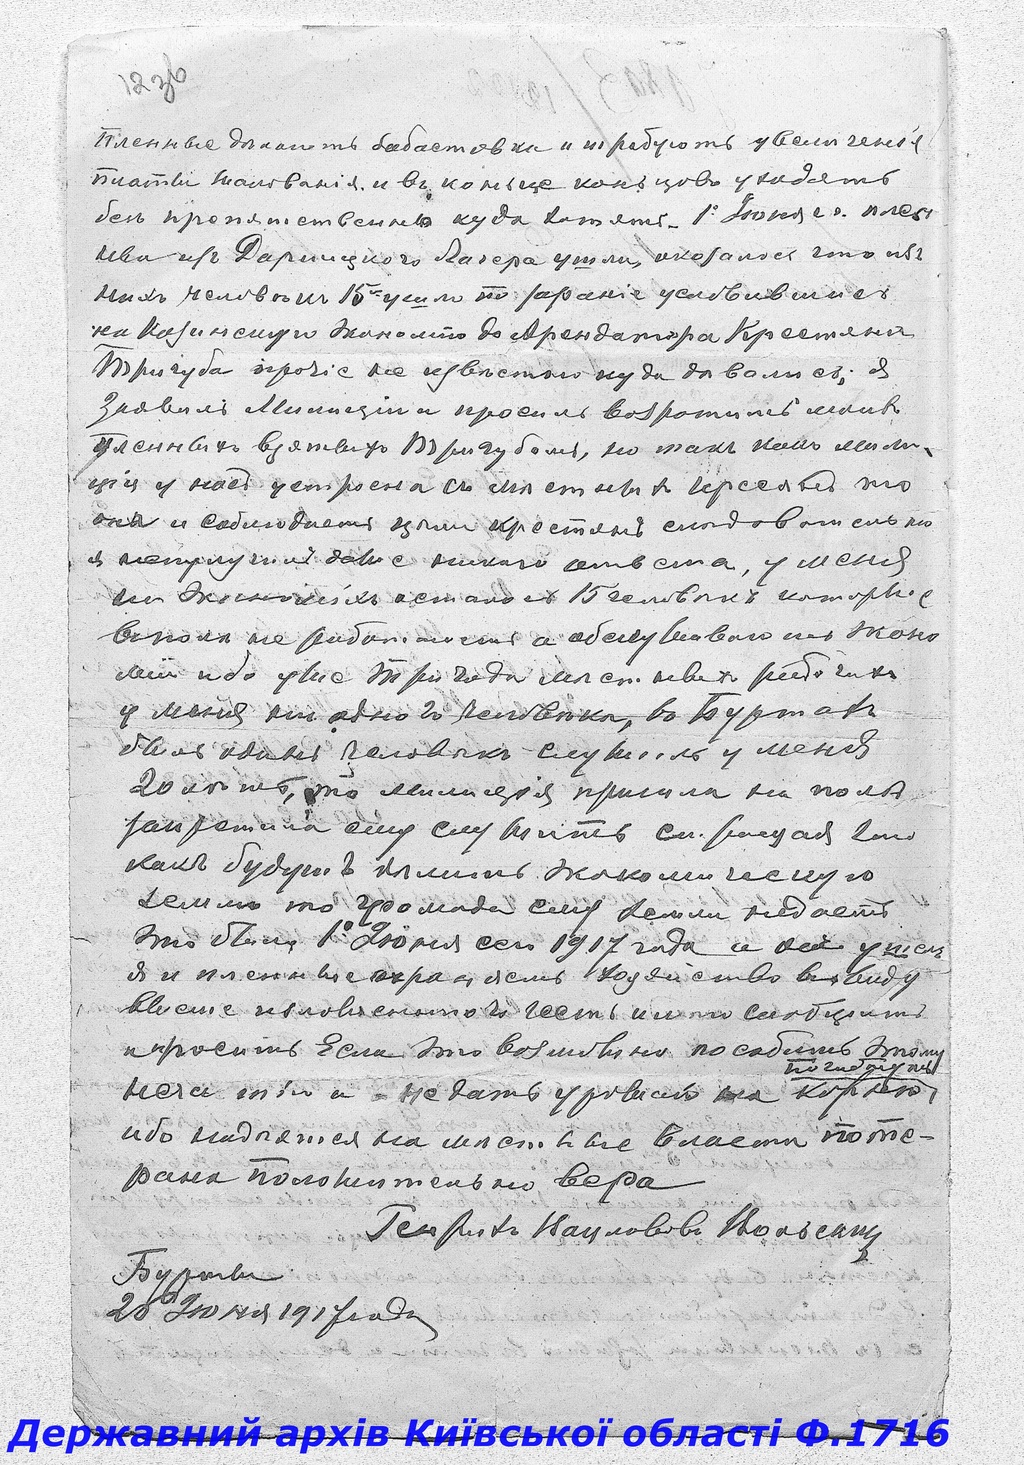 123б
Пленные делаютъ забастовки и требуютъ увеличенія
платы жалованія. и въ конце концовъ уходятъ
безъ препятственно куда хотятъ. 1го Іюня с. г. плен
ики изъ Дарницкаго Лагеря ушли, оказалося что изъ
нихъ человекъ 15ть ушло по заранее условившись
на Козинскую Экономію до Арендатора Крестьяна
Тригуба прочіе не известно куда девались; я
Заявилъ Милиціи и просилъ возротить моихъ
Пленныхъ взятыхъ Тригубомъ, но такъ какъ мили-
ція у насъ устроена съ местныхъ кресянъ то
она и соблюдаетъ цели крестянъ следовательно
я неполучилъ даже никакого ответа, у меня
на Экономіяхъ осталось 15 человекъ которые
въ поли не работаютъ а обслуживаютъ Эконо
міи ибо уже Три года местныхъ рабочихъ
у меня ни одного человека, во Буртахъ
былъ одинъ человекъ служилъ у меня
20 летъ, то милиція пришла на поле
запретила ему служить говоря что
какъ будутъ делить Экономическую
землю то громада ему земли недастъ
Это было 1го Іюня сего 1917 года и онъ ушелъ
я и пленные охраняемъ хозяйство въ виду
выше изложеннаго честь имею сообщить
и просить Если Это возможно пособить Этому
нещастію и не дать урожаю на корню
погибнуть
ибо надеятся на местные власти поте-
ряна Положительно вера
Генрихъ Карловъ Польскій
Бурты
20го Іюня 1917 года
Державний архів Київської області Ф.1716